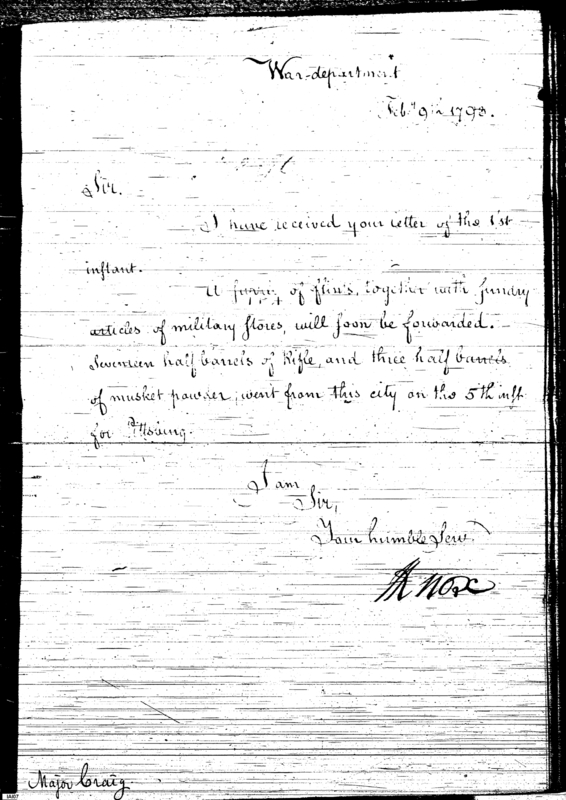 War-department
Feby 9th 1793.
Sir.
I have received your letter of the 1st
instant.
A supply of flints, together with sundry
articles of military stores, will soon be forwarded.
Seventeen half barrels of Rifle, and three half barrels
of musket powder, went from this city on the 5th inst.
for Pittsburg.
I am
Sir,
Your humble Serv.
H Knox
Major Craig.